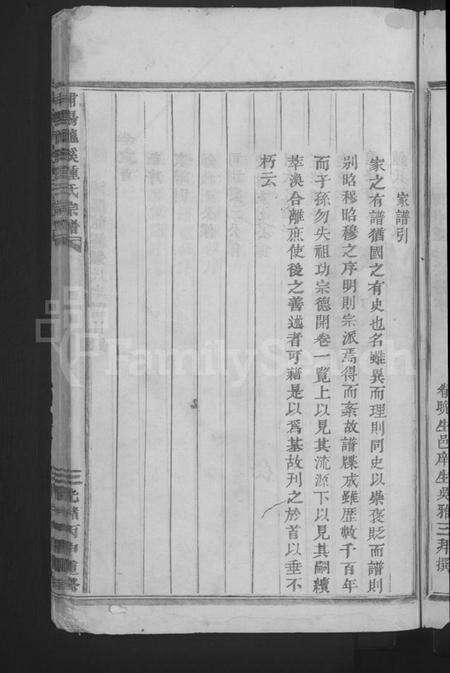 家譜引
家之有譜猶國之有史也名雖異而理則同史以樂褒貶而譜則
别昭穆昭穆之序明則宗派焉得而紊故譜牒成雖歷數千百年
而子孫勿失祖功宗德開卷一覽上以見其流源下以見其嗣續
萃渙合離庶使後之善述者可藉是以爲基故刊之於首以垂不
朽云
陽龍溪鍾氏宗譜
光緒丙申重
眷晩生邑庠生吳雅三拜撰
FamilySearch